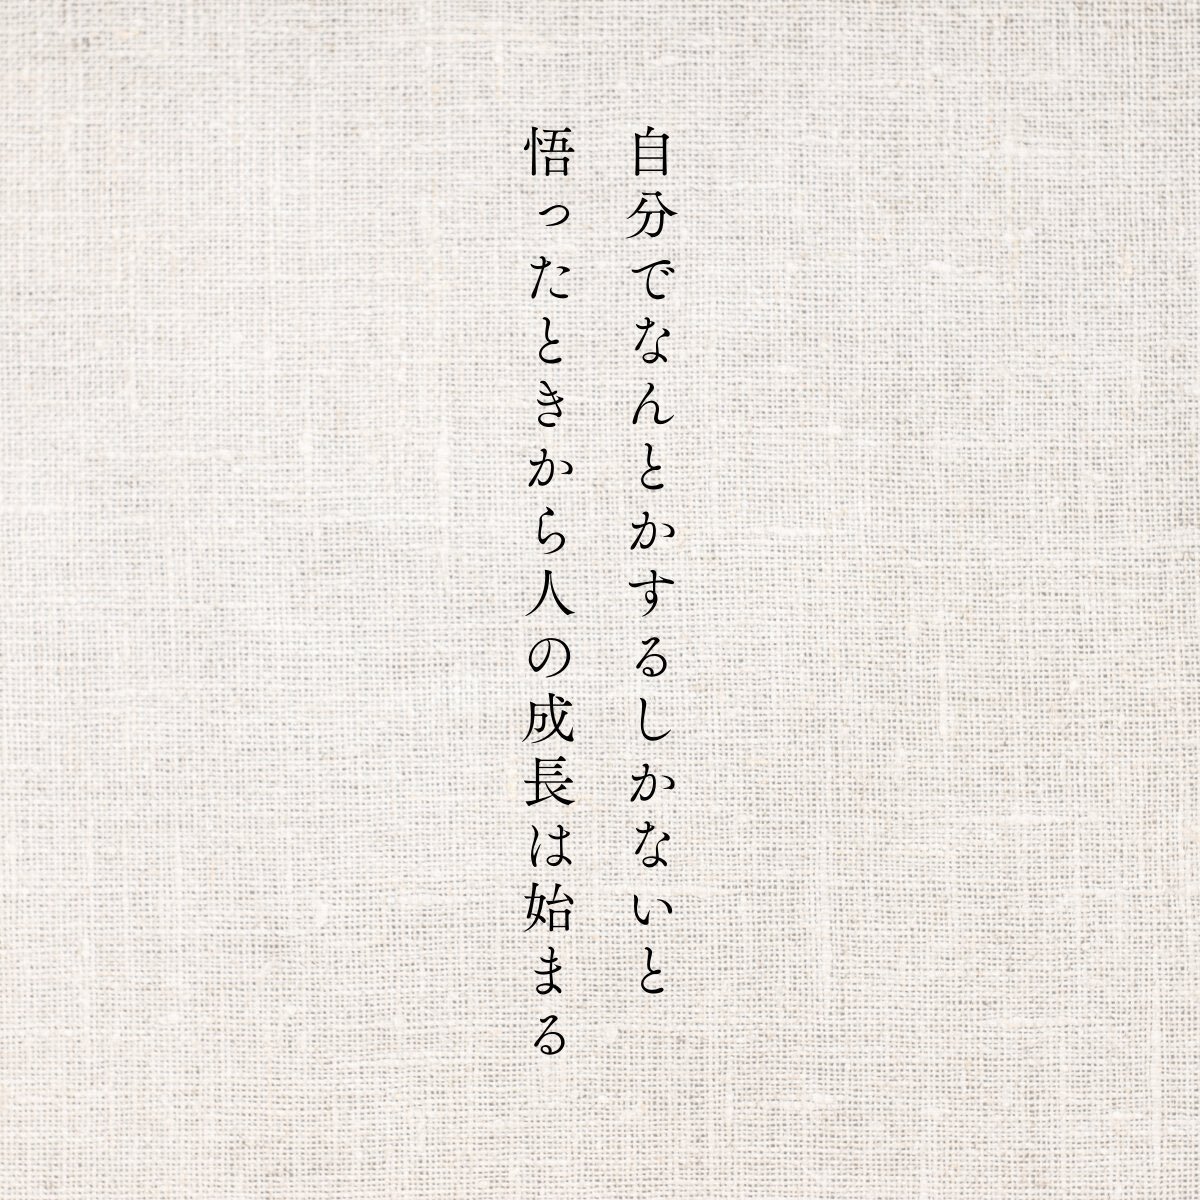 自分でなんとかするしかないと
悟ったときから人の成長は始まる